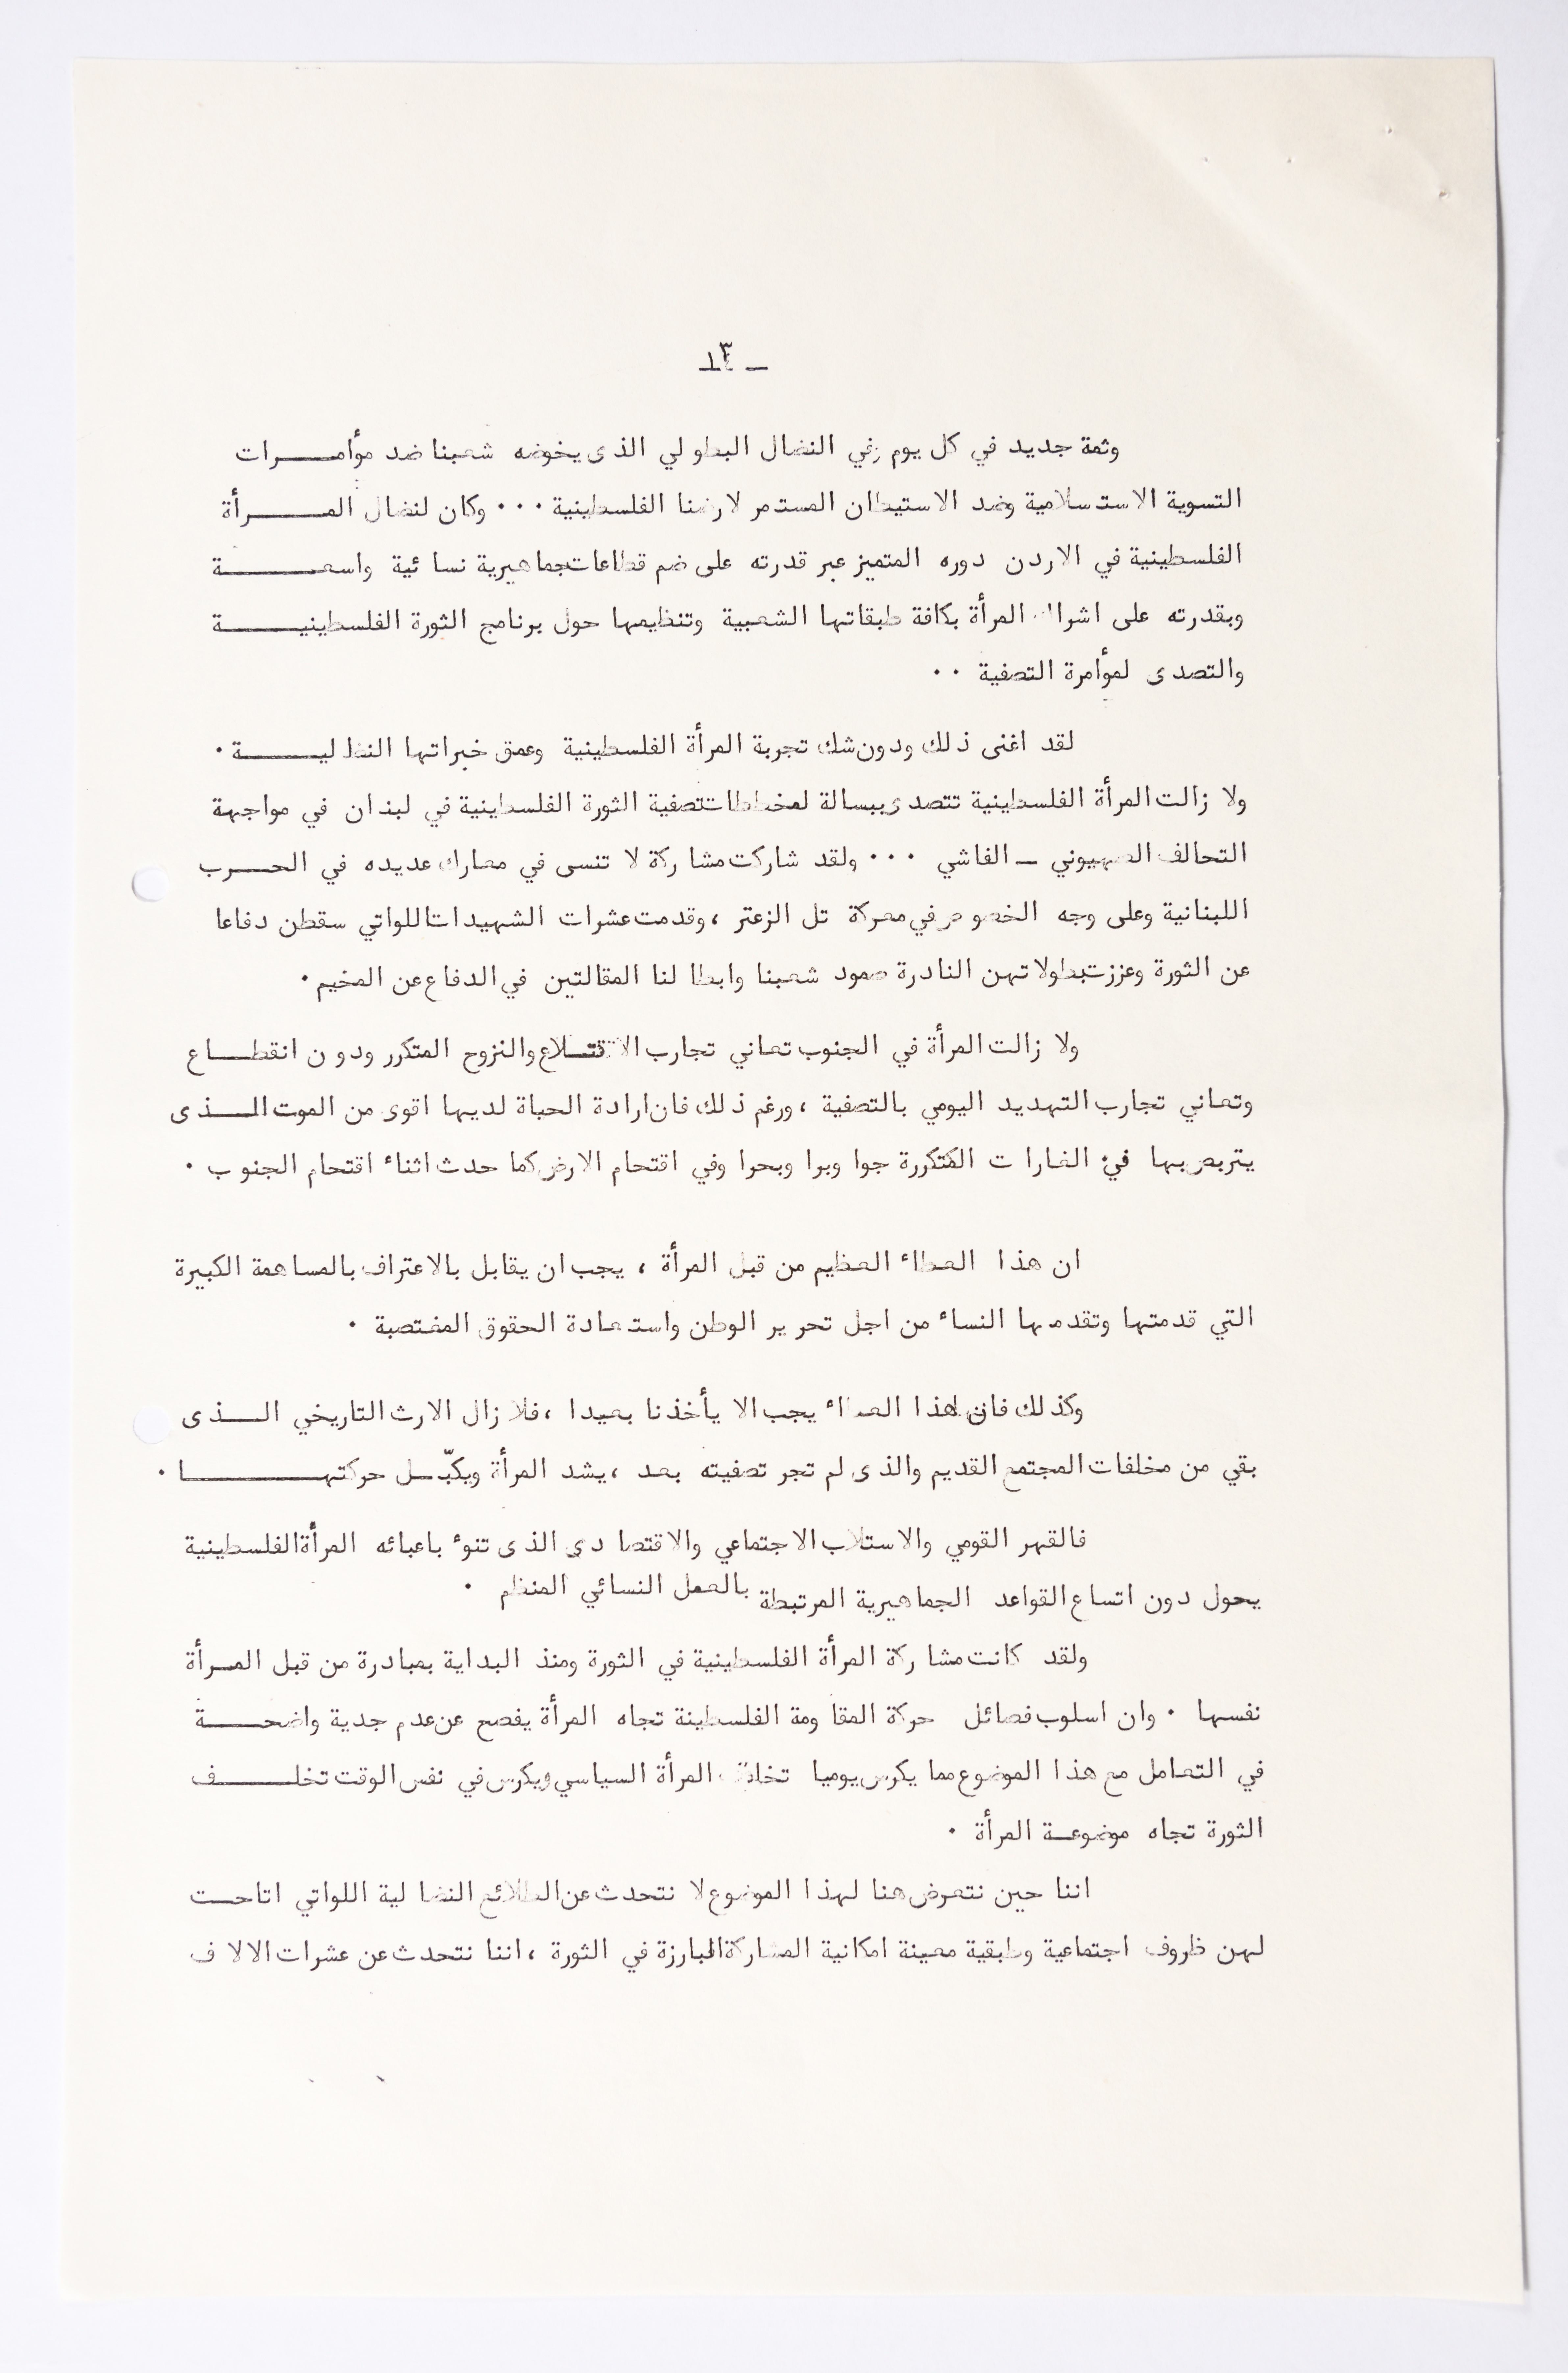 ـ ٣ ـ
وثمة جديد في كل يوم في النضال البطولي الذى يخوضه شعبنا ضد مؤامـــرات
التسوية الاستسلامية وضد الاستيطان المستمر لارضنا الفلسطينية ٠٠٠ وكان لنضال المـــرأة
الفلسطينية في الاردن دوره المتميز عبر قدرته على ضم قطاعات جماهيرية نسائية واسعـــة
وبقدرته على اشراك المرأة بكافة طبقاتها الشعبية وتنظيمها حول برنامج الثورة الفلسطينيـــة
والتصدى لمؤامرة التصفية ٠٠
لقد اغنى ذلك ودون شك تجربة المرأة الفلسطينية وعمق خبراتها النضاليـــة ٠
ولا زالت المرأة الفلسطينية تتصدى ببسالة لمخططات تصفية الثورة الفلسطينية في لبنان في مواجهة
التحالف الصهيوني ـ الفاشي ٠٠٠ ولقد شاركت مشاركة لا تنسى في معارك عديده في الحـــرب
اللبنانية وعلى وجه الخصوص في معركة تل الزعتر ، وقدمت عشرات الشهيدات اللواتي سقطن دفاعا
عن الثورة وعززت بطولاتهن النادرة صمود شعبنا وابطالنا المقالتين في الدفاع عن المخيم ٠
ولا زالت المرأة في الجنوب تعاني تجارب الاقتــلاع والنزوح المتكرر ودون انقطـــاع
وتعاني تجارب التهديد اليومي بالتصفية ، ورغم ذلك فان ارادة الحياة لديها اقوى من الموت الـــذى
يتربص بها في الغارات المتكررة جوا وبرا وبحرا وفي اقتحام الارض كما حدث اثناء اقتحام الجنوب ٠
ان هذا العطاء العظيم من قبل المرأة ، يجب ان يقابل بالاعتراف بالمساهمة الكبيرة
التي قدمتها وتقدمها النساء من اجل تحرير الوطن واستعادة الحقوق المغتصبة ٠
وكذلك فان هذا العطاء يجب الا يأخذنا بعيدا ، فلا زال الارث التاريخي الـــذى
بقي من مخلفات المجتمع القديم والذى لم تجر تصفيته بعد ، يشد المرأة ويكبّــل حركتهـــا ٠
فالقهر القومي والاستلاب الاجتماعي والاقتصادى الذى تنوء باعبائه المرأة الفلسطينية
يحول دون اتساع القواعد الجماهيرية المرتبطة بالعمل النسائي المنظم ٠
ولقد كانت مشاركة المرأة الفلسطينية في الثورة ومنذ البداية بمبادرة من قبل المــرأة
نفسها ٠ وان اسلوب فصائل حركة المقاومة الفلسطينة تجاه المرأة يفصح عن عدم جدية واضحـــة
في التعامل مع هذا الموضوع مما يكرس يوميا تخلف المرأة السياسي ويكرس في نفس الوقت تخلـــف
الثورة تجاه موضوعــة المرأة ٠
اننا حين نتعرض هنا لهذا الموضوع لا نتحدث عن الطلائع النضالية اللواتي اتاحــت
لهن ظروف اجتماعية وطبقية معينة امكانية المشاركة البارزة في الثورة ، اننا نتحدث عن عشرات الالاف